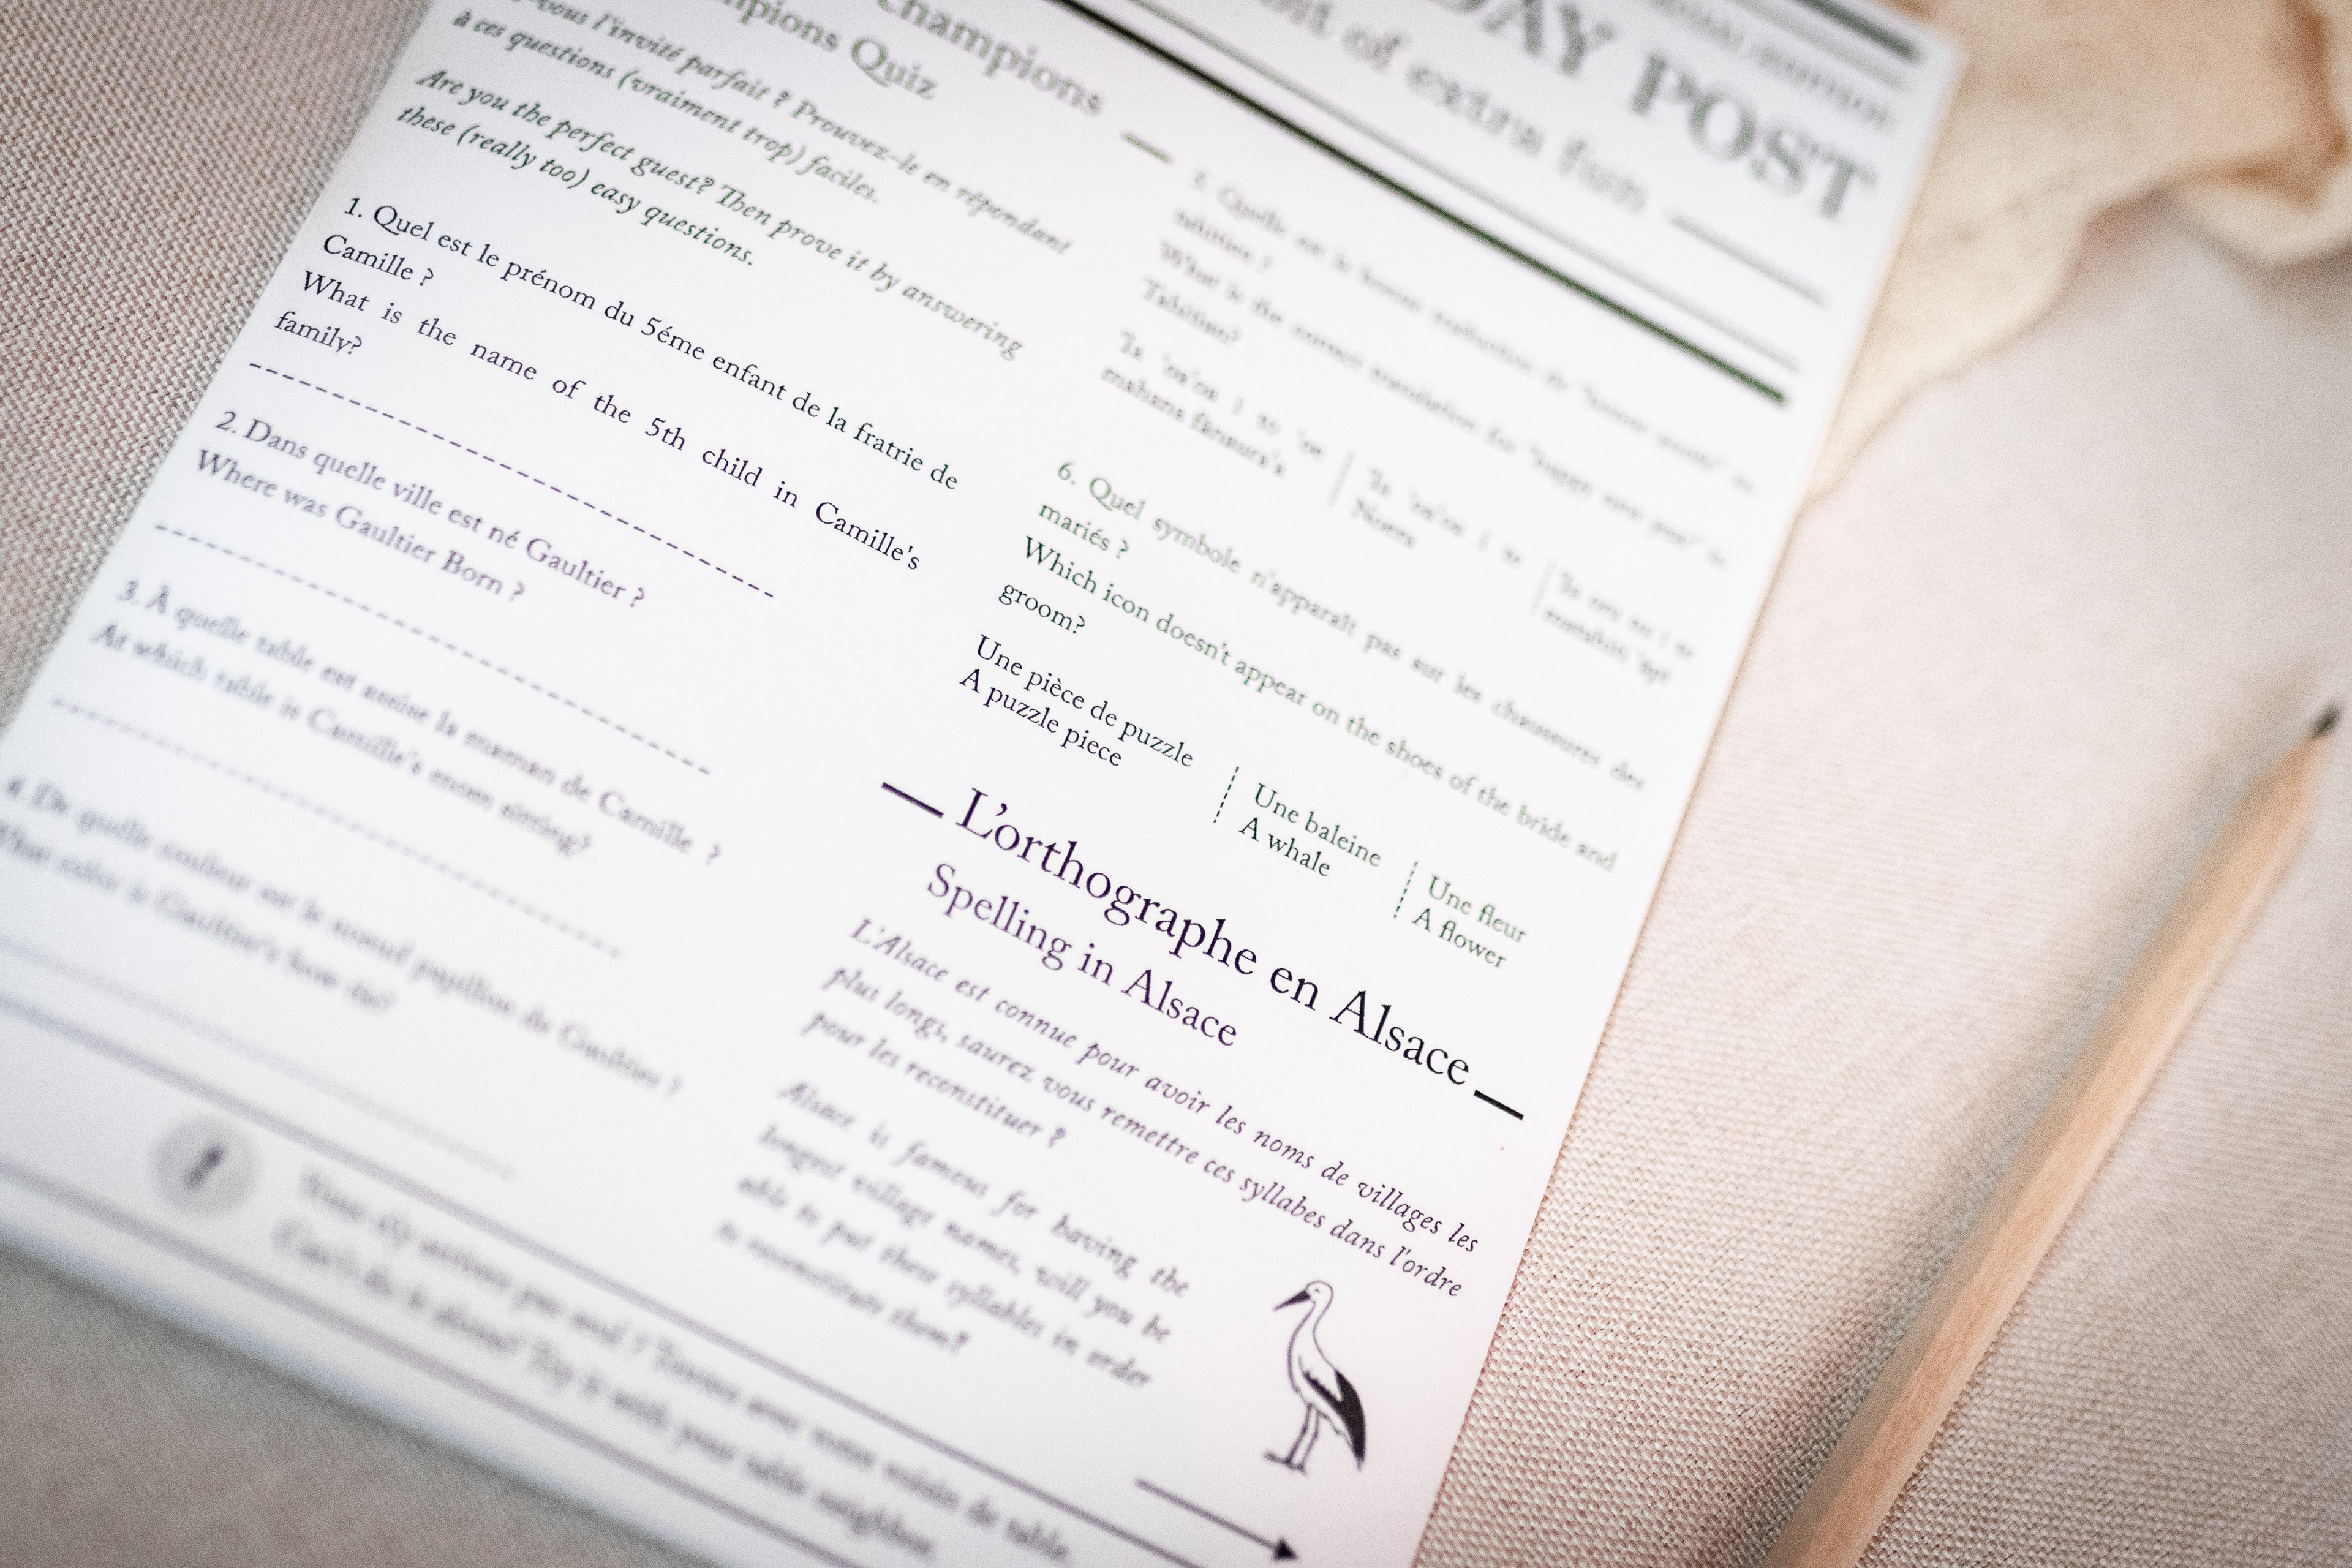 DAY POST
of extra fun
Champions
Champions Quiz
-vous l'invité parfait ? Prouvez-le en répondant
à ces questions (vraiment trop) faciles.
Are you the perfect guest? Then prove it by answering
these (really too) easy questions.
1. Quel est le prénom du 5éme enfant de la fratrie de
Camille ?
What is the name of the 5th child in Camille's
family?
2. Dans quelle ville est né Gaultier ?
Where was Gaultier Born ?
3. À quelle table est assise la maman de Camille ?
At which table is Camille's mom sitting?
4. De quelle couleur est le noeud papillon de Gaultier ?
What color is Gaultier's bow tie?
What is the correct translation for "happy new year" in
Tahitian?
6. Quel symbole n'apparaît pas sur les chaussures des
mariés ?
Which icon doesn't appear on the shoes of the bride and
groom?
Une pièce de puzzle
A puzzle piece
Une baleine
A whale
Une fleur
A flower
L'orthographe en Alsace
Spelling in Alsace
L'Alsace est connue pour avoir les noms de villages les
plus longs, saurez vous remettre ces syllabes dans l'ordre
pour les reconstituer ?
Alsace is famous for having the
longest village names, will you be
able to put these syllables in order
to reconstitute them?
Vous n'y arrivez pas seul ? Tentez avec votre voisin de table.
Can't do it alone? Try it with your table neighbor.